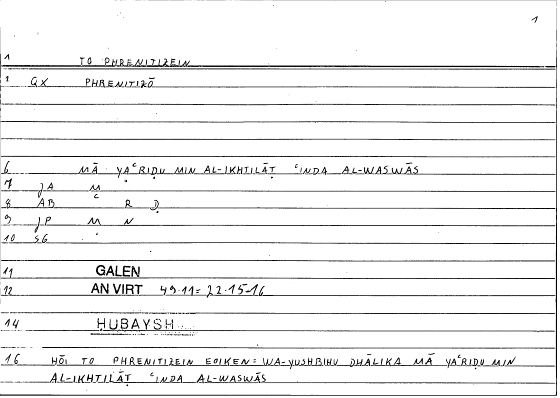 1
1 TO PHRENITIZEIN
1 GX PHRENITIZŌ
6 MĀ YAʿRIḌU MIN AL-IKHTILĀṬ ʿINDA AL-WASWĀS
7 JA M
8 AB ʿ R Ḍ
9 JP M N
10 SG
11 GALEN
12 AN VIRT 49.11= 22.15-16
14 ḤUBAYSH
16 HŌI TO PHRENITIZEIN EOIKEN= WA-YUSHBIHU DHĀLIKA MĀ YAʿRIḌU MIN
AL-IKHTILĀṬ ʿINDA AL-WASWĀS